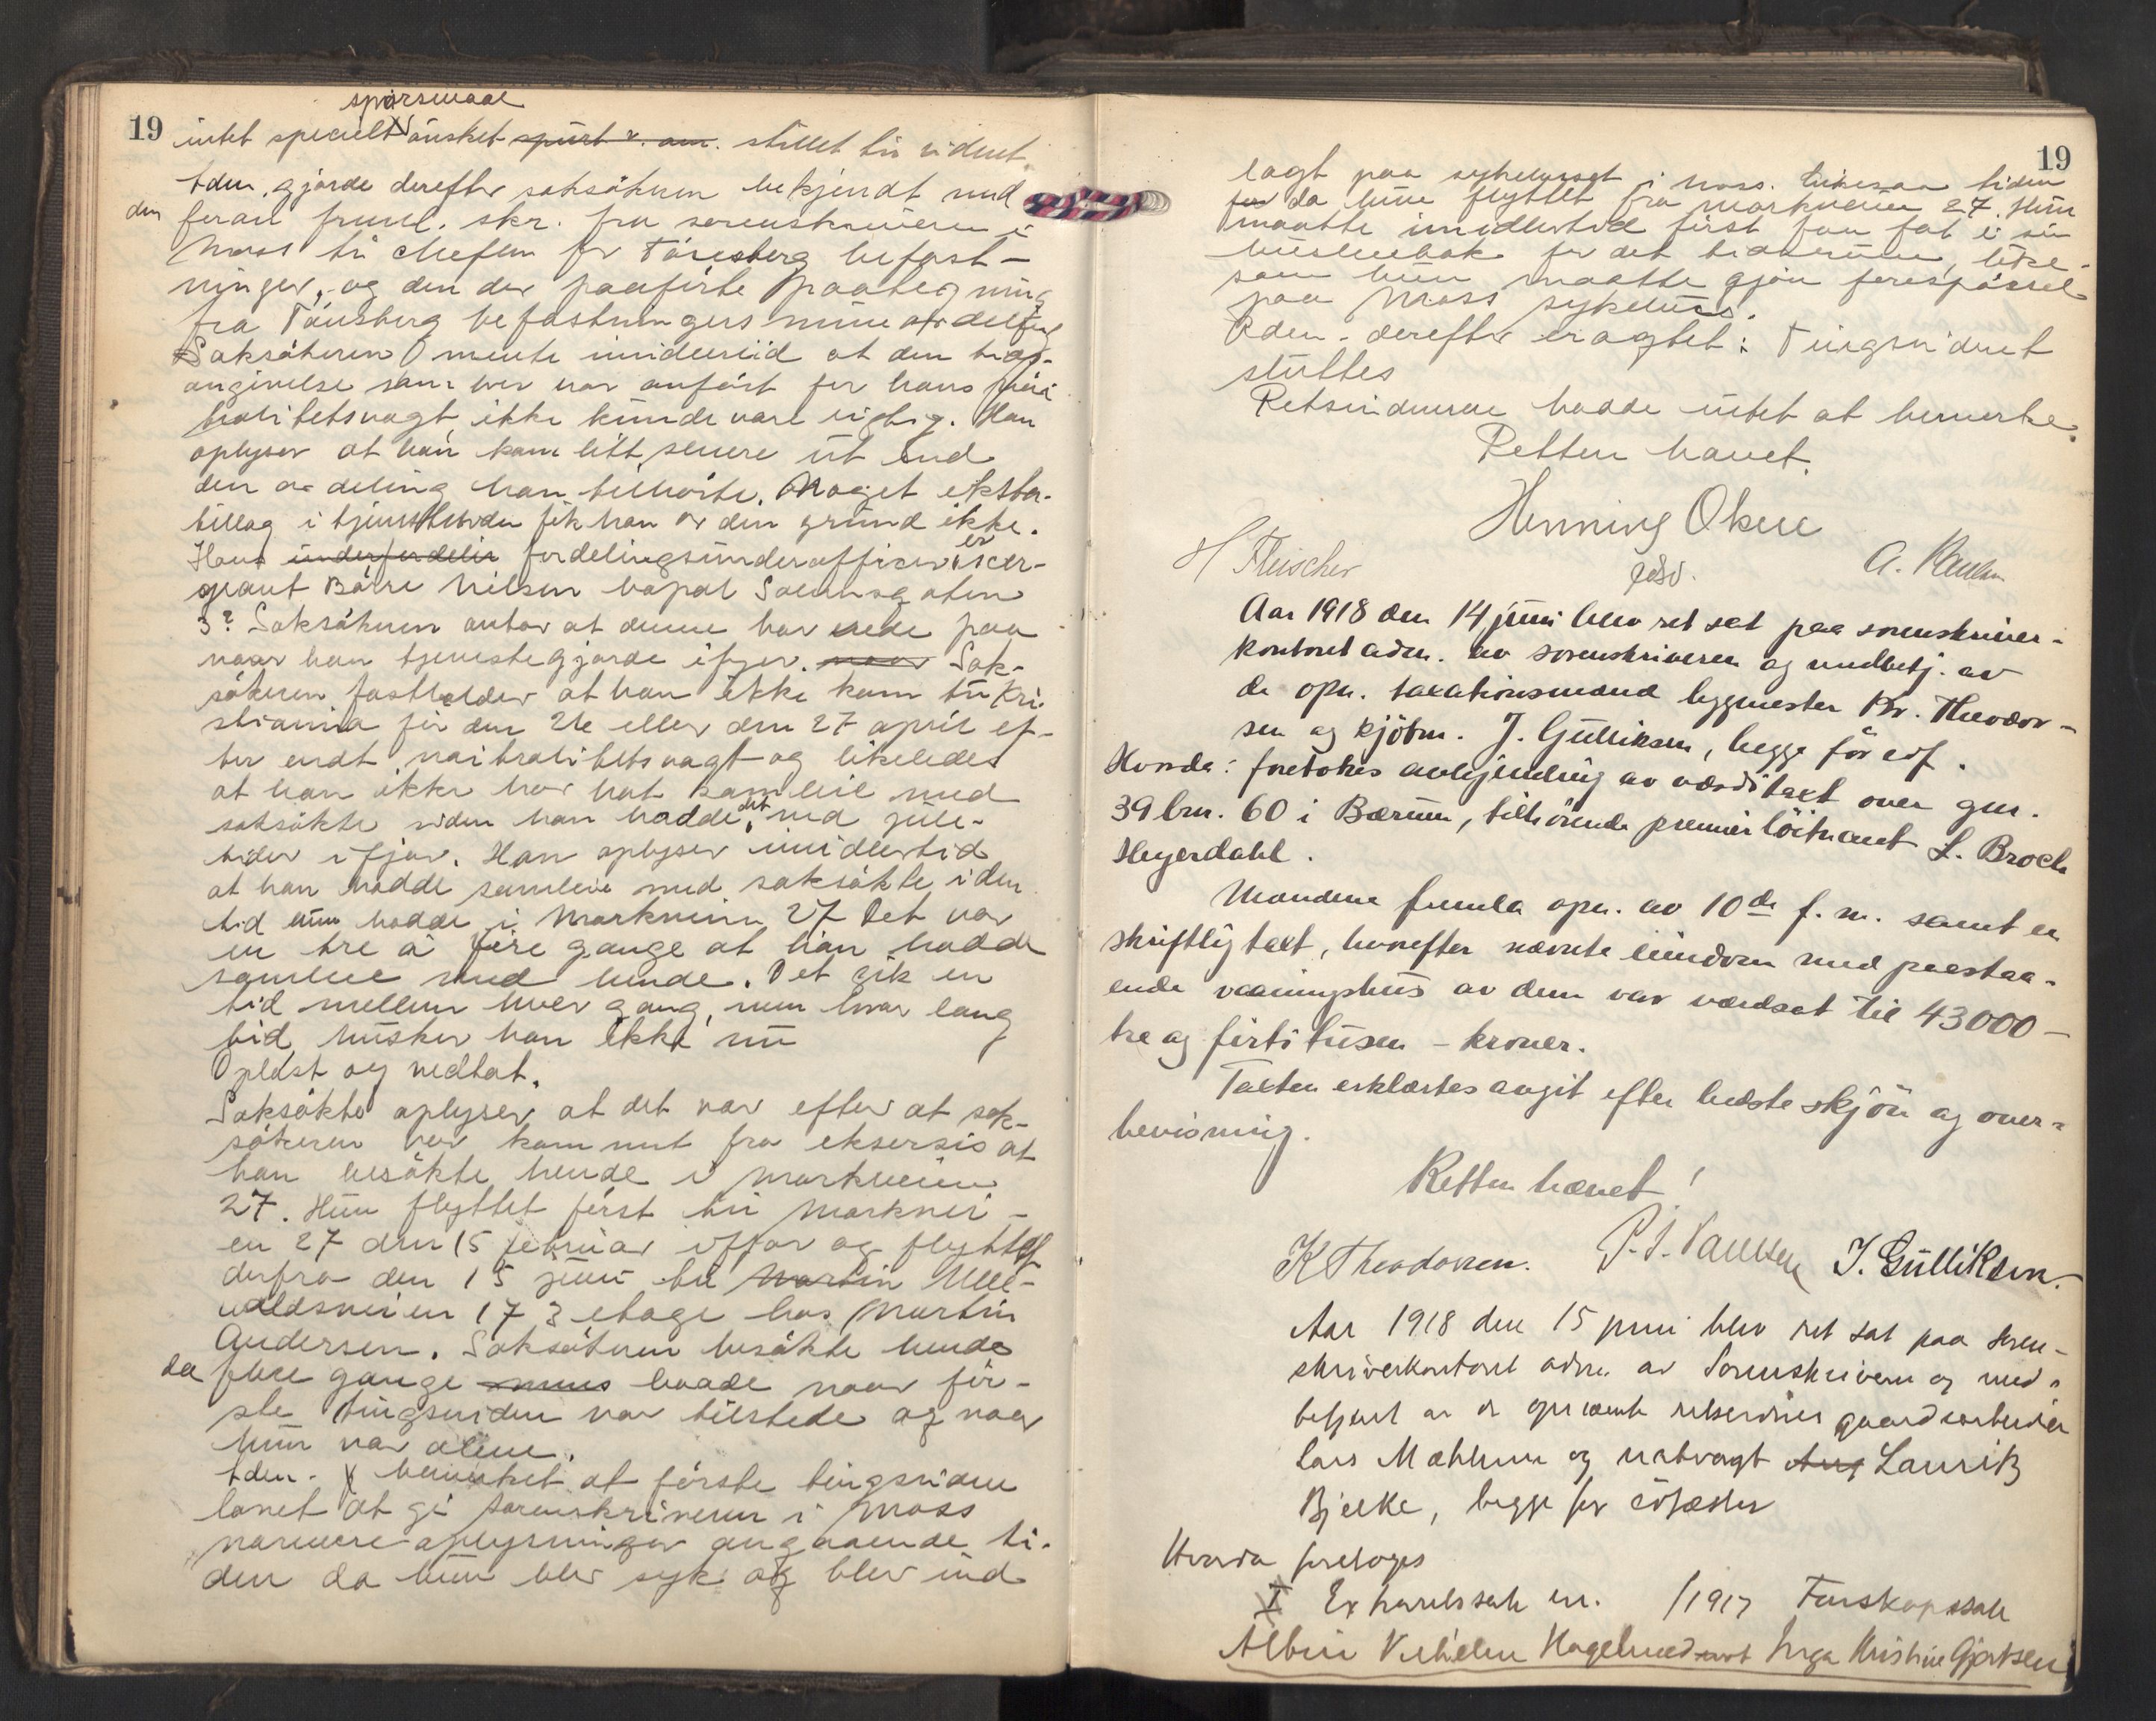 19
spörsmaal
intet specielt önsket spurt v. om. stillet til vidnet.
Adm. gjorde derefter saksökeren bekjendt med
den foran freml. skr. fra sorenskriveren i
Moss til chefen for Tönsberg befæst-
ninger, og den der paaførte paategning
fra Tönsberg befæstningers mineavdeling
Saksökeren mente imidlertid at den tids-
angivelse som her var anført for hans nöi-
tralitetsvagt ikke kunde være rigtig. Han
oplyser at han kom litt senere ut end
den avdeling han tilhørte. Noget ekstra-
tillæg i tjenestetiden fik han av den grund ikke.
Hans underfordelin fordelingsunderofficer er ser-
geant Börre Nilsen
3? Saksökeren antar at denne har rede paa
naar han tjenestegjorde ifjor. naar Sak-
sökeren fastholder at han ikke kom til Kri-
stiania før den 26 eller den 27 april ef-
ter endt nøitralitetsvagt og likeledes
at han ikke har hat samleie med
saksökte siden han hadde det ved jule-
tider ifjor. Han oplyser imidlertid
at han hadde samleie med saksökte i den
tid hun hadde i Markveien 27 Det var
en tre à fire gange at han hadde
samleie med hende. Det gik en
tid mellem hver gang, men hvor lang
tid husker han ikke nu
Oplæst og vedtat.
Saksökte oplyser at det var efter at sak-
sökeren var kommet fra eksersis at
han besökte hende i Markveien
27. Hun flyttet først til Markvei-
en 27 den 15 februar ifjor og flyttet
derfra den 15 juni til Martin Ulle-
vaalsveien 17 3 etage hos Martin
Andersen. Saksökeren besökte hende
der flere gange mens baade naar för-
ste tingsvidne var tilstede og naar
hun var alene.
Adm. bemerket at förste tingsvidne
lovet at gi sorenskriveren i Moss
nærmere oplysninger angaaende ti-
den da hun blev syk og blev ind
19
lagt paa sykehuset i Moss. Likesaa tiden
for da hun flyttet fra Markveien 27. Hun
maatte imidlertid först faa fat i sin
husleiebok for det tidsrum, like-
som hun maatte gjöre forespörsel
paa Moss sykehus.
Adm. derefter eragtet: Tingsvidnet
sluttes
Retsvidnerne hadde intet at bemerke.
Retten hævet.
Henning Oken
edsv.
H Fleischer
A. Paulsen
Aar 1918 den 14 juni blev ret sat paa sorenskriver-
kontoret adm. av sorenskriveren og medbetj. av
de opn. taxationsmænd bygmester Kr. Theodor-
sen og kjöbm. J. Gulliksen, begge för edf.
Hvorda: foretokes avhjemling av værditaxt over gnr.
39 brn. 60 i Bærum, tilhörende premierlöitnant L. Broch
Heyerdahl.
Mændene fremla opn. av 10de f. m. samt en
skriftlig taxt, hvorefter nævnte eiendom med paastaa-
ende vaaningshus av dem var værdsat til 43000 -
tre og förti tusen - kroner.
Taxten erklærtes avgit efter bedste skjön og over-
bevisning.
Retten hævet!
K Theodorsen. P. I. Paulsen J. Gulliksen.
Aar 1918 den 15 juni blev ret sat paa soren-
skriverkontoret adm. av Sorenskriveren og med-
betjent av de opnævnte retsvidner gaardsarbeider
Lars Mæhlum og natvagt Aug Lauritz
Bjelke, begge før edfæstet
Hvorda foretoges
I Extraretssak nr. /1917 Farskapssak
Albin Vilhelm Hagelund mot Inga Kristine Gjertsen